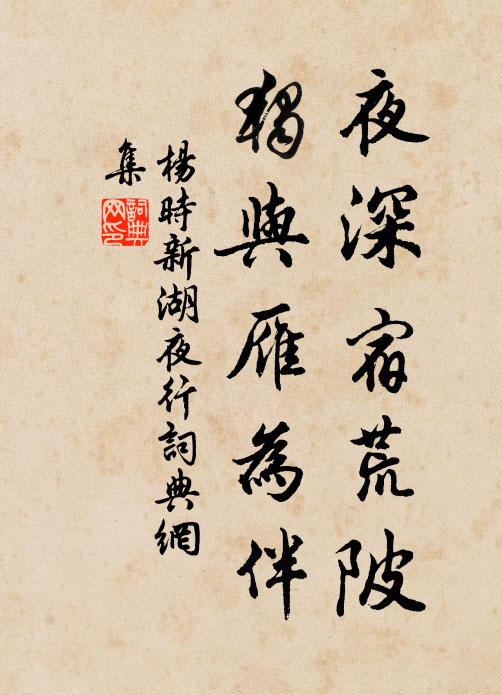 夜深宿荒陂
獨與雁為伴
楊時新湖夜行詞典網
集
詞典
网印